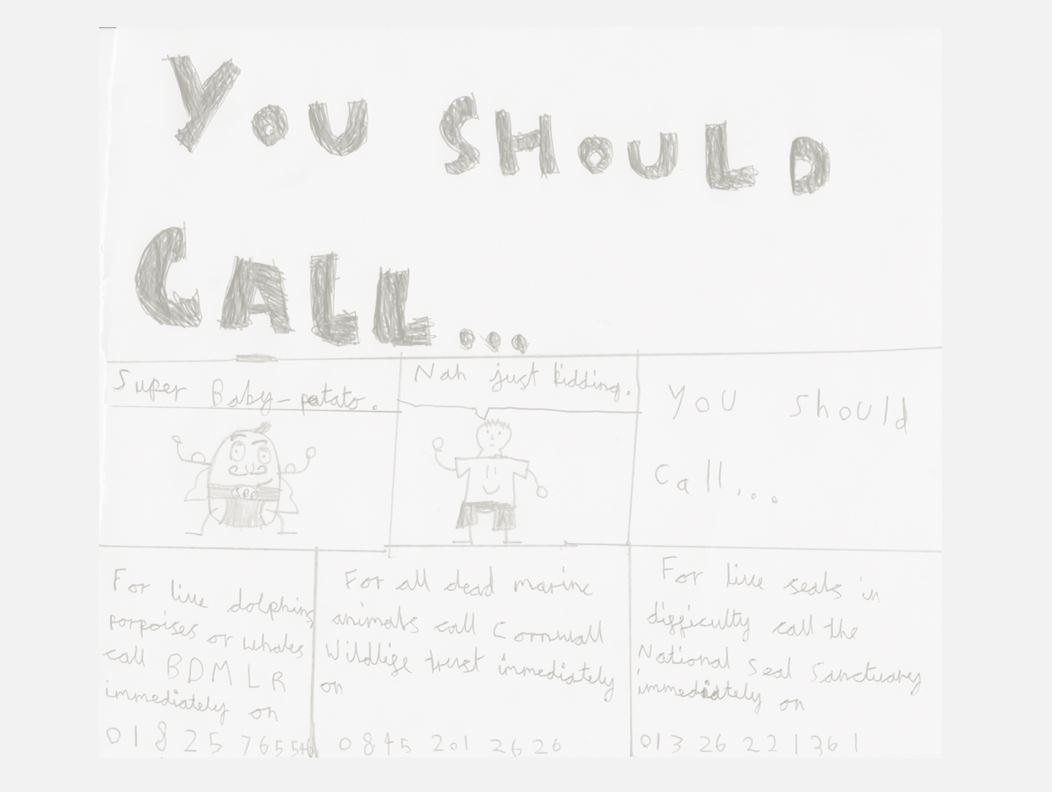 YOU SHOULD
CALL...
Super Baby-potato.
Nah just kidding.
You should
call...
For live dolphins
porpoises or whales
call BDMLR
immediately on
01825 765546
For all dead marine
animals call Cornwall
Wildlife trust immediately
on
0845 201 2626
For live seals in
difficulty call the
National Seal Sanctuary
immediately on
01326 221361